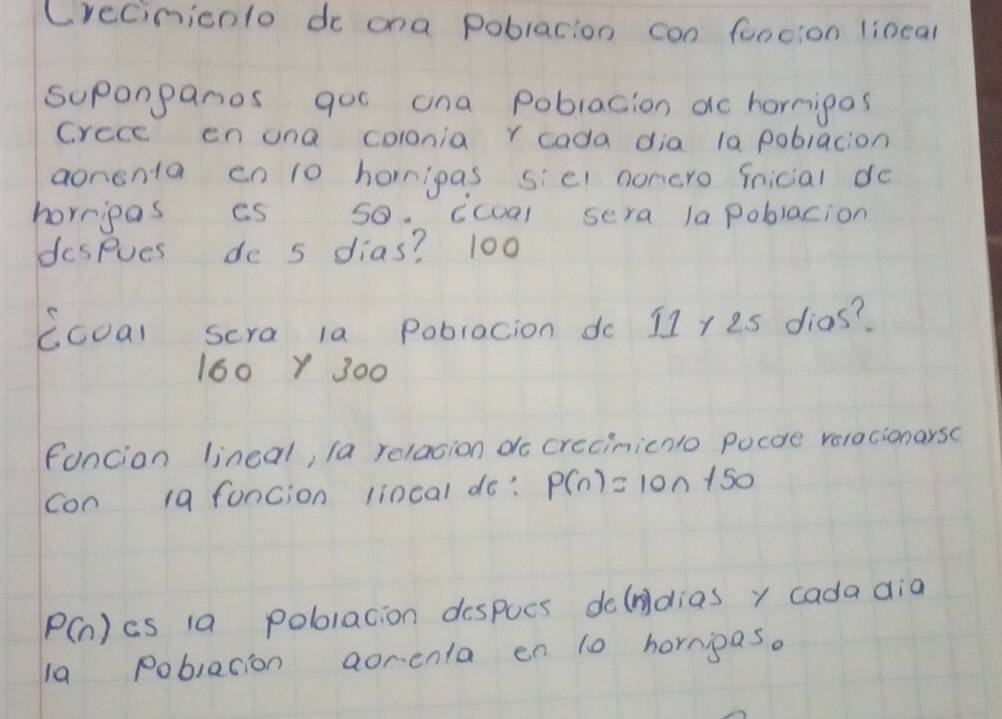 Crecimiento de una Poblacion con funcion lineal
suponganos que una Poblacion de hormigas
Crece en una colonia y cada dia la poblacion
aumenta en 10 hormigas si el numero inicial de
hormigas es 50. ¿cual sera la Poblacion
despues de 5 dias? 100
¿cual sera la Poblacion de 11 y 25 dias?.
160 y 300
funcion lineal, la relacion de crecimiento puede relacionarse
con la funcion lineal de: P(n)=10n+50
P(n) es la poblacion despues de (n) dias y cada dia
la Poblacion aumenta en 10 hormigas.